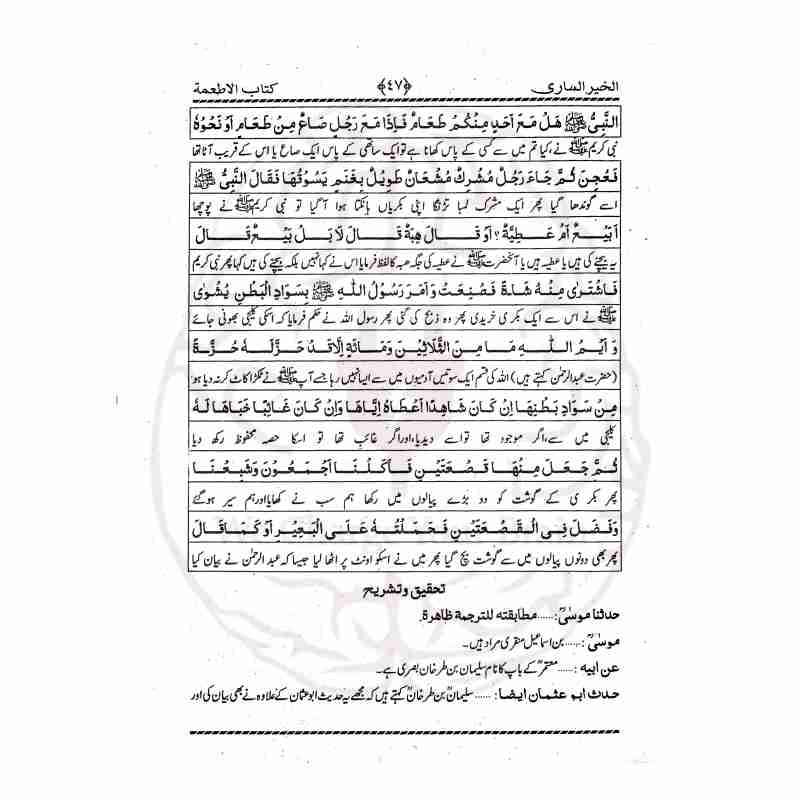 الخیر الساری ﴿٤٧﴾ کتاب الاطعمة
النَّبِیُّ ﷺ هَلْ مَعَ اَحَدٍ مِنْکُمْ طَعَامٌ فَاِذَا مَعَ رَجُلٍ صَاعٌ مِنْ طَعَامٍ اَوْ نَحْوُهٗ
نبی کریم ﷺ نے ،کیا تم میں سے کسی کے پاس کھانا ہے تو ایک ساتھی کے پاس ایک صاع یا اس کے قریب آٹا تھا
فَعُجِنَ ثُمَّ جَاءَ رَجُلٌ مُشْرِكٌ مُشْعَانٌّ طَوِیْلٌ بِغَنَمٍ یَسُوْقُهَا فَقَالَ النَّبِیُّ ﷺ
اسے گوندھا گیا پھر ایک مشرک لمبا تڑنگا اپنی بکریاں ہانکتا ہوا آ گیا تو نبی کریم ﷺ نے پوچھا
اَبَیْعٌ اَمْ عَطِیَّةٌ ؟ اَوْ قَالَ هِبَةٌ قَالَ لَا بَلْ بَیْعٌ قَالَ
یہ بیچنے کی ہیں یا عطیہ ہیں یا آنحضرت ﷺ نے عطیہ کی جگہ ھبہ کا لفظ فرمایا اس نے کہا نہیں بلکہ بیچنے کی ہیں کہا پھر نبی کریم
فَاشْتَرٰی مِنْهُ شَاةً فَصُنِعَتْ وَاَمَرَ رَسُوْلُ اللّٰهِ ﷺ بِسَوَادِ الْبَطْنِ یُشْوٰی
ﷺ نے اس سے ایک بکری خریدی پھر وہ ذبح کی گئی پھر رسول اللہ نے حکم فرمایا کہ اسکی کلیجی بھونی جائے
وَ اَیْمُ اللّٰهِ مَا مِنَ الثَّلَاثِیْنَ وَمِائَةٍ اِلَّا قَدْ حَزَّ لَهٗ حُزَّةً
(حضرت عبدالرحمٰن کہتے ہیں) اللہ کی قسم ایک سو تیس آدمیوں میں سے ایسا نہیں رہا جسے آپ ﷺ نے ٹکڑا کاٹ کر نہ دیا ہو
مِنْ سَوَادِ بَطْنِهَا اِنْ کَانَ شَاهِدًا اَعْطَاهُ اِیَّاهَا وَاِنْ کَانَ غَائِبًا خَبَاَهَا لَهٗ
کلیجی میں سے،اگر موجود تھا تو اسے دیدیا،اور اگر غائب تھا تو اسکا حصہ محفوظ رکھ دیا
ثُمَّ جَعَلَ مِنْهَا قَصْعَتَیْنِ فَاَکَلْنَا اَجْمَعُوْنَ وَشَبِعْنَا
پھر بکر ی کے گوشت کو دو بڑے پیالوں میں رکھا ہم سب نے کھایا اور ہم سیر ہو گئے
وَفَضَلَ فِی الْقَصْعَتَیْنِ فَحَمَلْتُهٗ عَلَی الْبَعِیْرِ اَوْ کَمَا قَالَ
پھر بھی دونوں پیالوں میں سے گوشت بچ گیا پھر میں نے اسکو اونٹ پر اٹھا لیا جیسا کہ عبدالرحمٰن نے بیان کیا
تحقیق وتشریح
حدثنا موسیٰؒ:...... مطابقته للترجمة ظاهرة.
موسیٰؒ:...... بن اسماعیل منقری مراد ہیں۔
عن ابیہ :...... معتمرؒ کے باپ کا نام سلیمان بن طرخان بصری ہے۔
حدث ابو عثمان ایضا:...... سلیمانؒ بن طرخانؒ کہتے ہیں کہ مجھے یہ حدیث ابوعثمان کے علاوہ نے بھی بیان کی اور